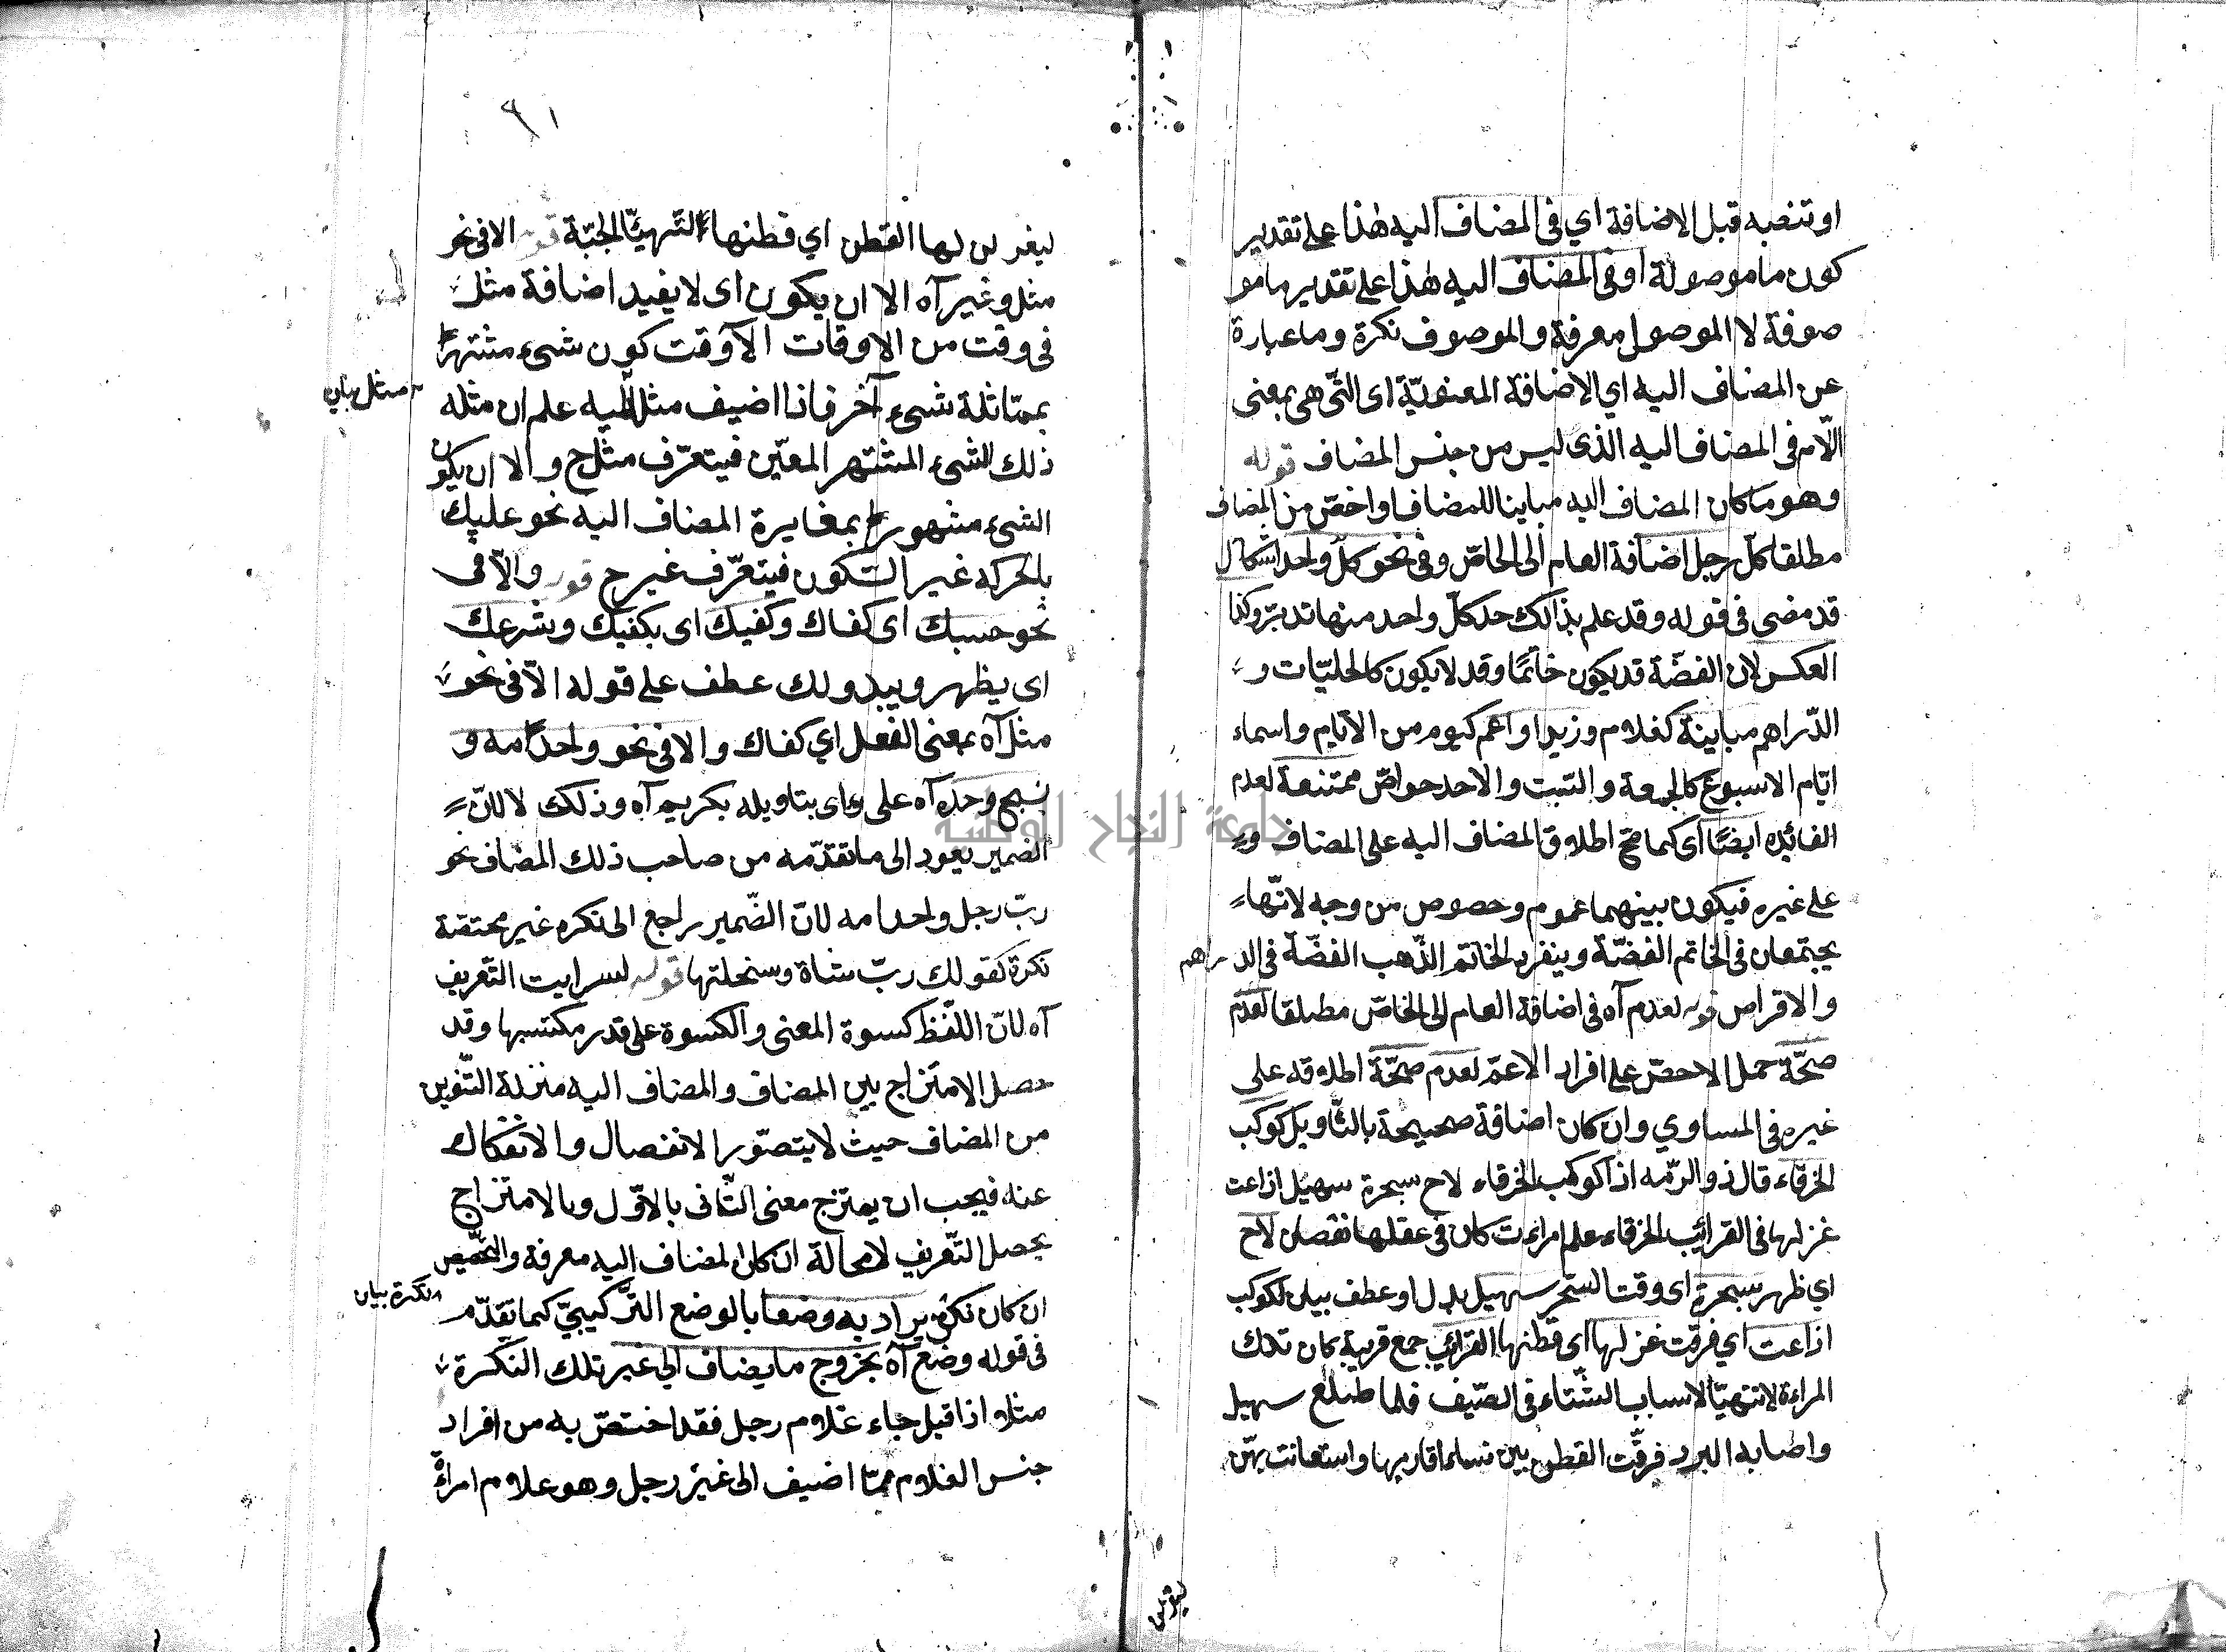 او تنصبه قبل الاضافة اي في المضاف اليه هٰذا على تقدير
كون ما موصولة او في المضاف اليه هٰذا على تقدير ما مو
صوفة لا الموصول معرفة والموصوف نكرة وما عبارة
عن المضاف اليه اي الاضافة المعنويّة اى الّتى هى بمعنى
اللّام في المضاف اليه الذى ليس من جنس المضاف قوله
وهو ما كان المضاف اليه مباينا للمضاف او اخصّ من المضاف
مطلقا ككلّ رجل اضافة العام الى الخاصّ وفى نحو كلّ واحد اشكال
قد مضى فى قوله وقد علم بذالك حد كلّ واحد منهما تدبّر وكذا
العكس لان الفضّة قد يكون خاتمًا وقد لا يكون كالحليّات و
الدّراهم مباينة كغلام وزيد او اعم كيوم من الايام واسماء
ايّام الاسبوع كالجمعة والسّبت والاحد خواصّ ممتنعة لعدم
الفائده ايضًا اى كما صحّ اطلاق المضاف اليه على المضاف و
على غيره فيكون بينهما عموم وخصوص من وجه لانّها
يجتمعان فى الخاتم الفضّة وينفرد الخاتم الذّهب الفضّة فى الدراهم
والاقراص قوله لعدم آه فى اضافة العام الى الخاصّ مطلقا لعدم
صحّة حمل الاخصّ على افراد الاعمّ لعدم صحّة اطلاقه على
غيره فى المساوي وان كان اضافة صحيحة بالتّأويل كوكب
الخرقاء قال ذو الرّمه اذا كوكب الخرقاء لاح سبحرة سهيل اذاعت
غزلها فى القرائب الخرقاء علم امراءت كان فى عقلها نقصان لاح
اي ظهر سبحرة اى وقت السّحر سهيل بدل او عطف بيان لكوكب
اذاعت اي فرقت غزلها اى قطنها القرائب جمع قريبة كان تلك
المراءة لا تتهيّأ لاسباب الشّتاء فى الصّيف فلما طلع سهيل
واصابه البرد فرقّت القطن بين نساء اقاربها واستعانت بهنّ
ليغزلن لها القطن اي قطنها التّهيّأ الجبّة قوله الا فى نحو
مثل وغير آه الا ان يكون اى لا يفيد اضافة مثل
فى وقت من الاوقات الّا وقت كون شىء مشتهرًا
بمماثلة شىء آخر فاذا اضيف مثل اليه علم ان مثله
مثل بيان
ذلك الشىء المشتهر المعيّن فيتعرّف مثل ح والا ان يكون
الشىء مشهورا بمغايرة المضاف اليه نحو عليك
بالحركة غير السّكون فيتعرّف غير ح قوله والّا فى
نحو حسبك اى كفاك وكفيك اى يكفيك وشرعك
اى يظهر ويبدو لك عطف على قوله الّا فى نحو
مثل آه بمعنى الفعل اي كفاك والا فى نحو واحد امه و
نسيج وحده آه على اى بتاويله بكريم آه وذلك لا لانّ
الضمير يعود الى ما تقدّمه من صاحب ذلك المضاف نحو
ربّ رجل واحد امه لانّ الضّمير راجع الى نكره غير مختصّة
نكرة كقولك ربّ شاة وسخلتها قوله لسرايت التّعريف
آه لانّ اللّفظ كسوة المعنى والكسوة على قدر مكتسبها وقد
حصل الامتزاج بين المضاف والمضاف اليه منزلة التّنوين
من المضاف حيث لا يتصّور الانفصال والانفكاك
عنه فيجب ان يمتزج معنى الثّانى بالاوّل وبالامتزاج
يحصل التّعريف لا محالة ان كان المضاف اليه معرفة والتّخصيص
ان كان نكرة يراد به وضعا بالوضع التّركيبيّ كما تقدّم
نكرة بيان
فى قوله وضع آه بخروج ما يضاف الى غير تلك النّكرة
مثلا اذا قيل جاء غلام رجل فقد اختصّ به من افراد
جنس الغلام ممّا اضيف الى غير رجل وهو غلام امراءة